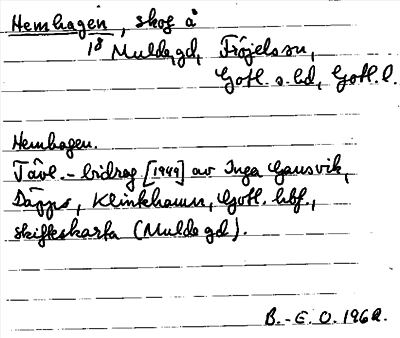 Hemhagen, skog å
1/8 Mulde, gd, Fröjels sn,
Gotl. s. hd, Gotl. l.
Hemhagen.
Tävl.-bidrag [1949] av Inga Gansvik,
Däpps, Klintehamn, Gotl. hbf.,
skifteskarta (Mulde gd).
B.-E. O. 1962.